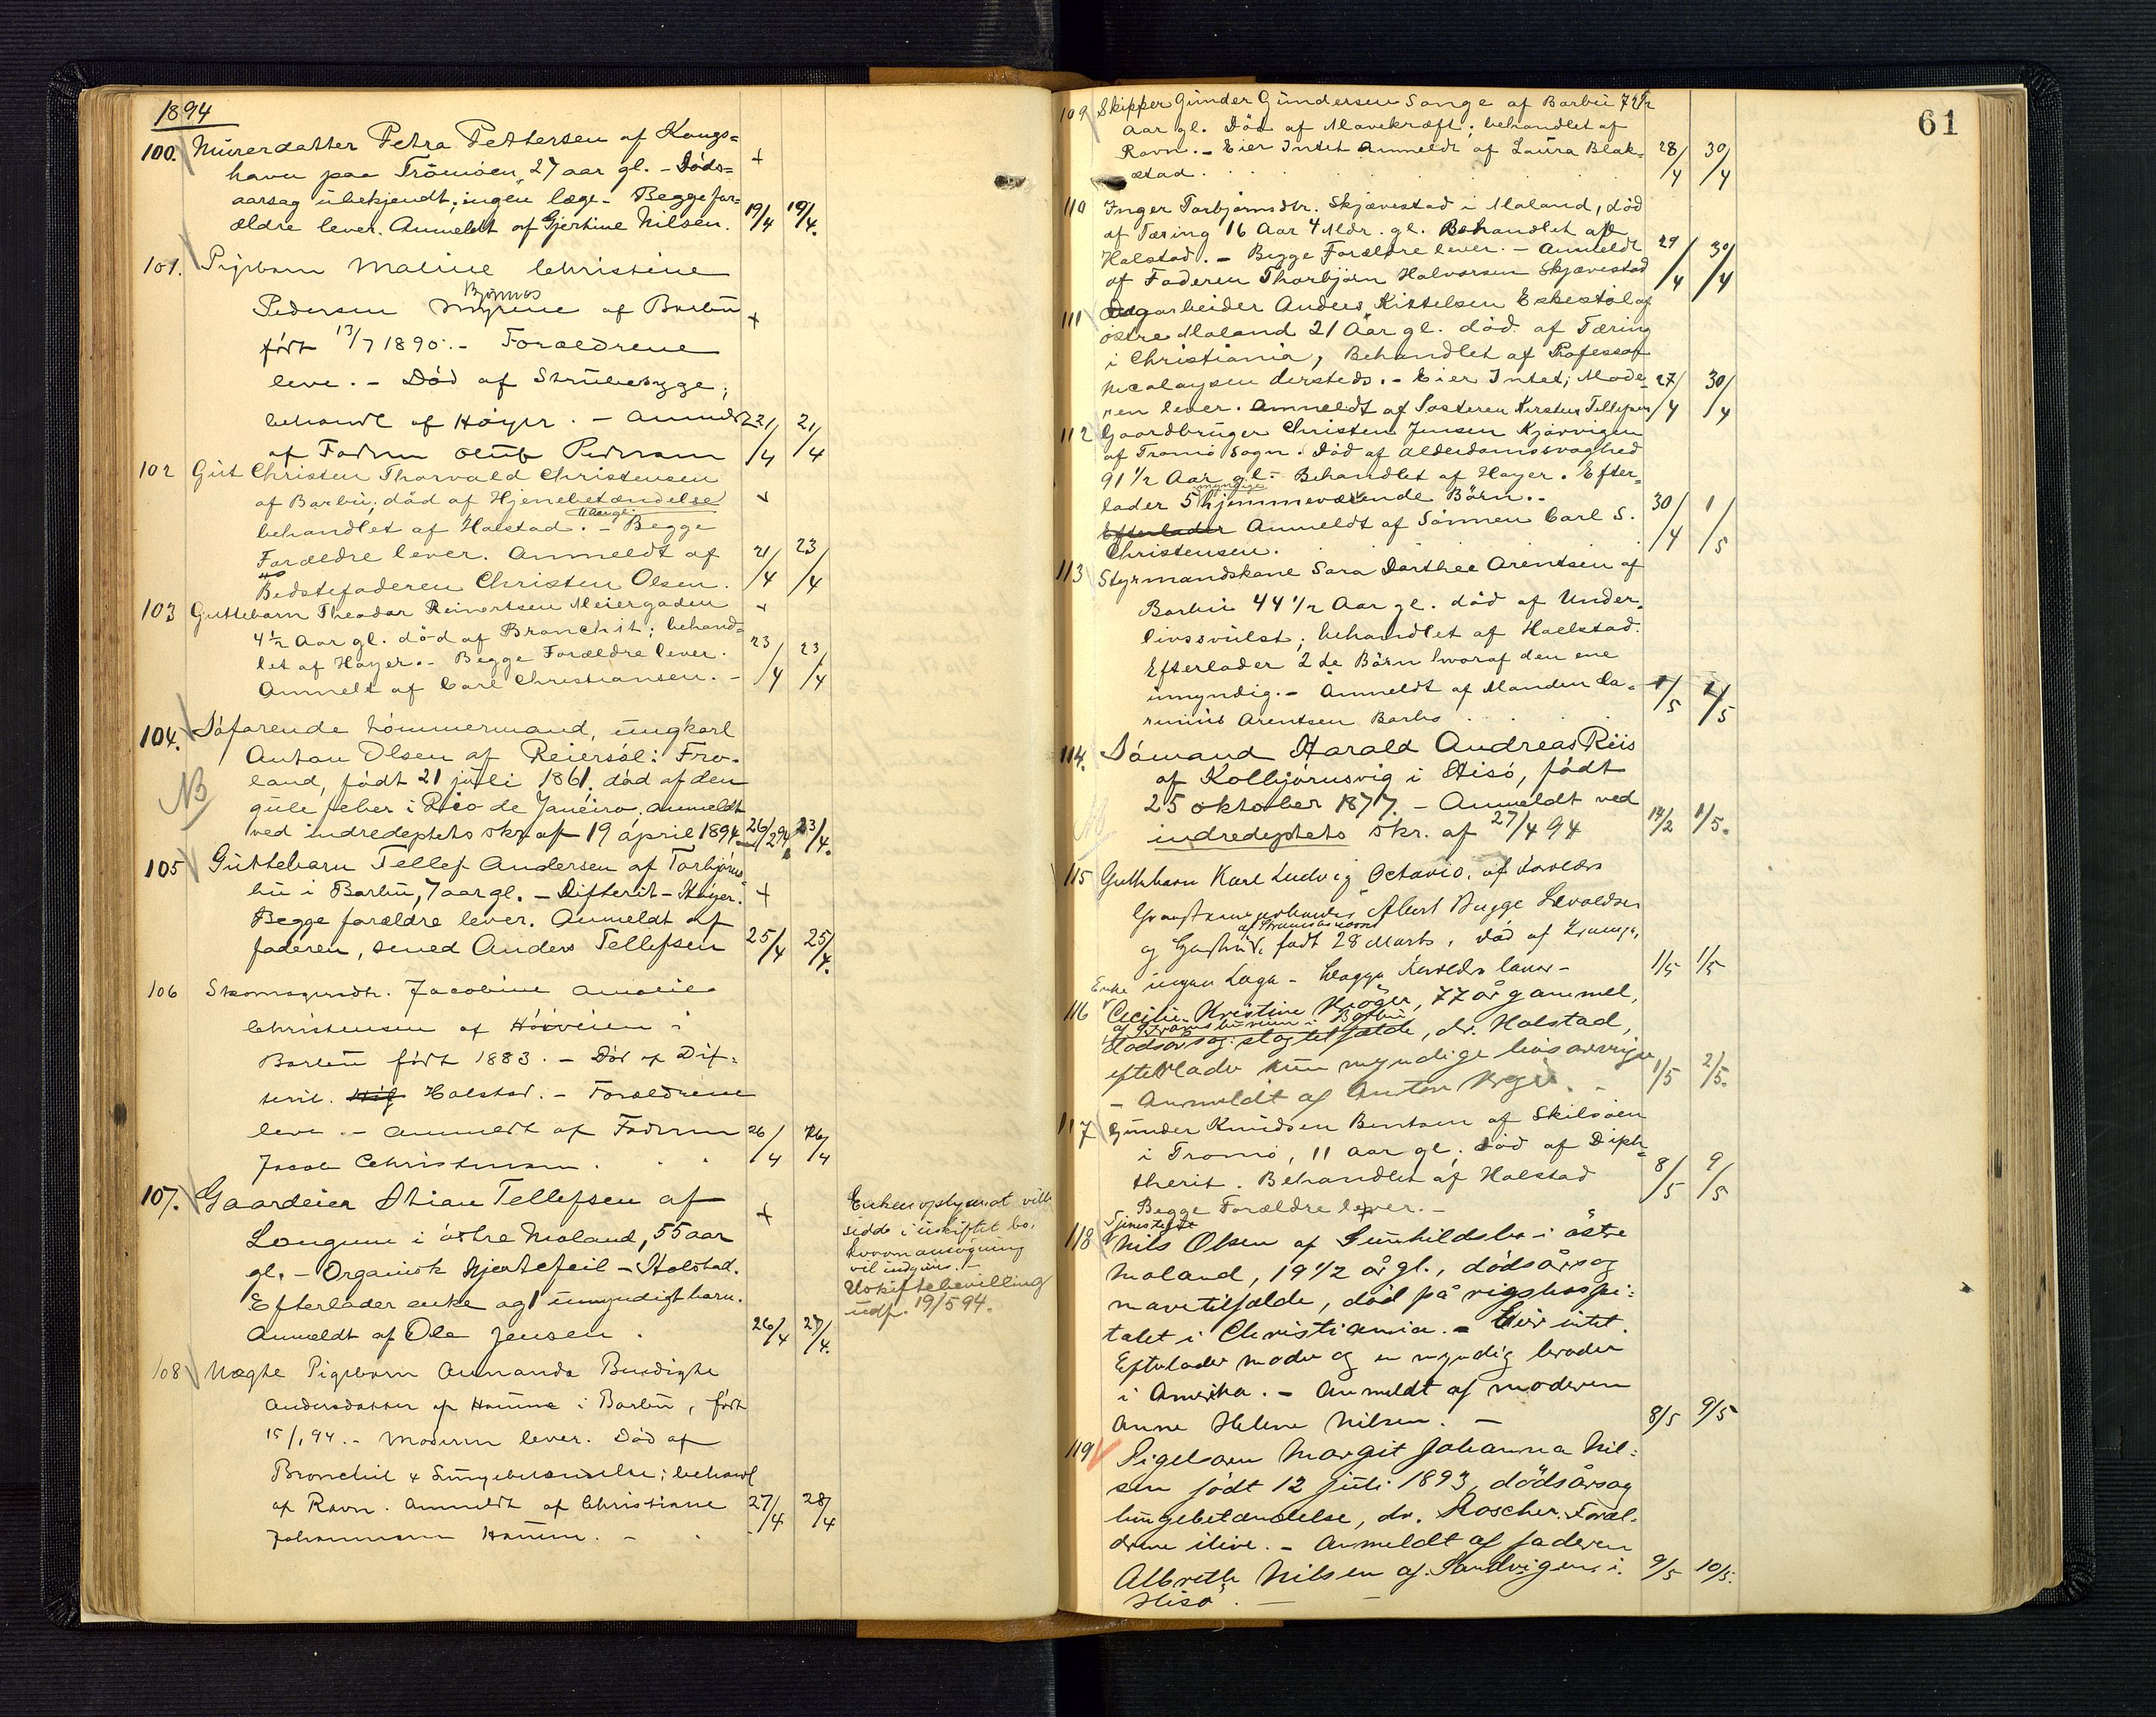 1894
100. Murerdatter Petra Pettersen af Kongs=
havn paa Tromøen, 27 aar gl. - Døds=
aarsag ubekjendt; ingen læge - Begge for=
ældre lever. Anmeldt af Gjertine Nilsen. 19/4 19/4.
101. Pigebarn Maline Christine
Bjønnes
Pedersen Myrene af Barbu
født 13/7 1890. - Forældrene
leve. - Død af Strubesyge;
behandl af Høyer. - Anmeldt 21/4 21/4
af Faderen Oluf Pedersen
102 Gut Christen Thorvald Christensen
af Barbu; død af Hjenebetændelse
11 Aar gl.
behandlet af Halstad. - Begge
Forældre lever. Anmeldt af 21/4 23/4
Bedstefaderen Christen Olsen.
103 Guttebarn Theodor Reinertsen Meiergaden
4½ Aar gl. død af Bronchit; behand=
let af Høyer. - Begge Forældre lever. 23/4 23/4
Anmelt af Carl Christiansen. -
104. Søfarende tømmermand, ungkarl
Anton Olsen af Reiersøl i Fro-
land, født 21 juli 1861, død af den
NB
gule feber i Rio de Janeiro, anmeldt
ved indredeptets skr. af 19 april 1894. 26/2 94 23/4.
105 Guttebarn Tellef Andersen af Torbjørns
bu i Barbu, 7 aar gl. - Difterit - Høyer.
Begge forældre lever. Anmeldt af
faderen, smed Anders Tellefsen 25/4 25/4.
106 Skomagerdtr. Jacobine Amalie
Christensen af Høiveien i
Barbu født 1883. - Død af Dif-
terit. Høf Halstad. - Forældrene
leve. - Anmeldt af Faderen 26/4 26/4
Jacob Christensen.
107. Gaardeier Stian Tellefsen af
Longum i østre Moland, 55 aar
gl. - Organisk hjertefeil - Halstad.
Efterlader enke og 1 umyndigt barn.
Anmeldt af Ole Jensen. 26/4 27/4.
Enken oplyser at ville
sidde i uskiftet bo,
hvorom ansøgning
vil indgives. -
Uskiftebevilling
udf. 19/5 94.
108 Uægte Pigebarn Amanda Bendighe
Andersdatter af Homme i Barbu, født
15/1 94. - Moderen lever. Død af
Bronchit & Lungebetændelse; behandl
af Ravn. Anmeldt af Christiane 27/4 28/4
Johannesen Homme. -
61
109 Skipper Gunder Gundersen Songe af Barbu 72½
Aar gl. Død af Mavekræft; behandlet af
Ravn. - Eier Intet Anmeldt af Laura Blak- 28/4 30/4
stad.
110 Inger Torbjørnsdtr. Skjævestad i Moland, død
af Tæring 16 Aar 4 Mdr. gl. Behandlet af
Halstad. - Begge Forældre lever. - Anmeldt 29/4 30/4
af Faderen Thorbjørn Halvorsen Skjævestad
111 Dagarbeider Anders Kittelsen Eskestøl af
østre Moland 21 Aar gl. død af Tæring
i Christiania, Behandlet af Professor
Nicolaysen dersteds. - Eier Intet; Mode- 27/4 30/4
ren lever. Anmeldt af Søsteren Kirsten Tellefsen
112 Gaardbruger Christen Jensen Kjørvigen
af Tromø Sogn. Død af Alderdomssvaghed
91½ Aar gl. - Behandlet af Høyer. Efter-
myndige
lader 5 hjemmeværende Børn. - 30/4 1/5
Efterlader Anmeldt af Sønnen Carl S.
Christensen.
113 Styrmandskone Sara Dorthee Arentsen af
Barbu 44½ Aar gl. død af Under-
livssvulst; behandlet af Halstad.
Efterlader 2de Børn hvoraf den ene
umyndig. - Anmeldt af Manden La- 1/5 1/5
runius Arentsen Barbo
114. Sømand Harald Andreas Riis
af Kolbjørnsvig i Hisø, født
25 oktober 1877. - Anmeldt ved
NB
indredeptets skr. af 27/4 94 14/2 1/5.
115 Guttebarn Karl Ludvig Octavio, af Forældre
Albert Bugge Levoldsen
af Strømsbusneset
og født 28 Marts. Død af Krampe,
ingen Læge - Begge Forældre lever - 1/5 1/5
Enke
116 Cecilie Kristine Krøger, 77 år gammel,
af Strømsbuveien i Barbu
dødsårsag: slagtilfælde, dr. Halstad,
efterlader kun myndige livsarvinger 1/5 2/5.
- Anmeldt af Anton Krøger. -
117 Gunder Knudsen Berntsen af Skilsøen
i Tromø, 11 aar gl; død af Diph-
therit. Behandlet af Halstad 8/5 9/5
Begge Forældre lever. -
Tjenestegut
118 Nils Olsen af Gunhildsbo i østre
Moland, 19 1/2 år gl., dødsårsag
mavetilfælde, død på rigshospi-
talet i Christiania. - Eier intet.
Efterlader moder og en myndig broder
i Amerika. - Anmeldt af moderen
Anne Helene Nilsen. - 8/5 9/5
119 Pigebarn Margit Johanna Nil-
sen født 12 juli 1893, dødsårsag
lungebetændelse, dr. Roscher. Foræl-
drene ilive. - Anmeldt af faderen
Albreth Nilsen af Sandvigen i 9/5 10/5.
Hisø. -